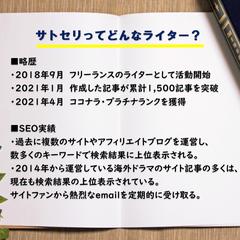 サトセリってどんなライター？
■略歴
・2018年9月 フリーランスのライターとして活動開始
・2021年1月 作成した記事が累計1,500記事を突破
・2021年4月 ココナラ・プラチナランクを獲得
■SEO実績
・過去に複数のサイトやアフィリエイトブログを運営し、
数多くのキーワードで検索結果に上位表示される。
・2014年から運営している海外ドラマのサイト記事の多くは、
現在も検索結果の上位表示されている。
サイトファンから熱烈なemailを定期的に受け取る。